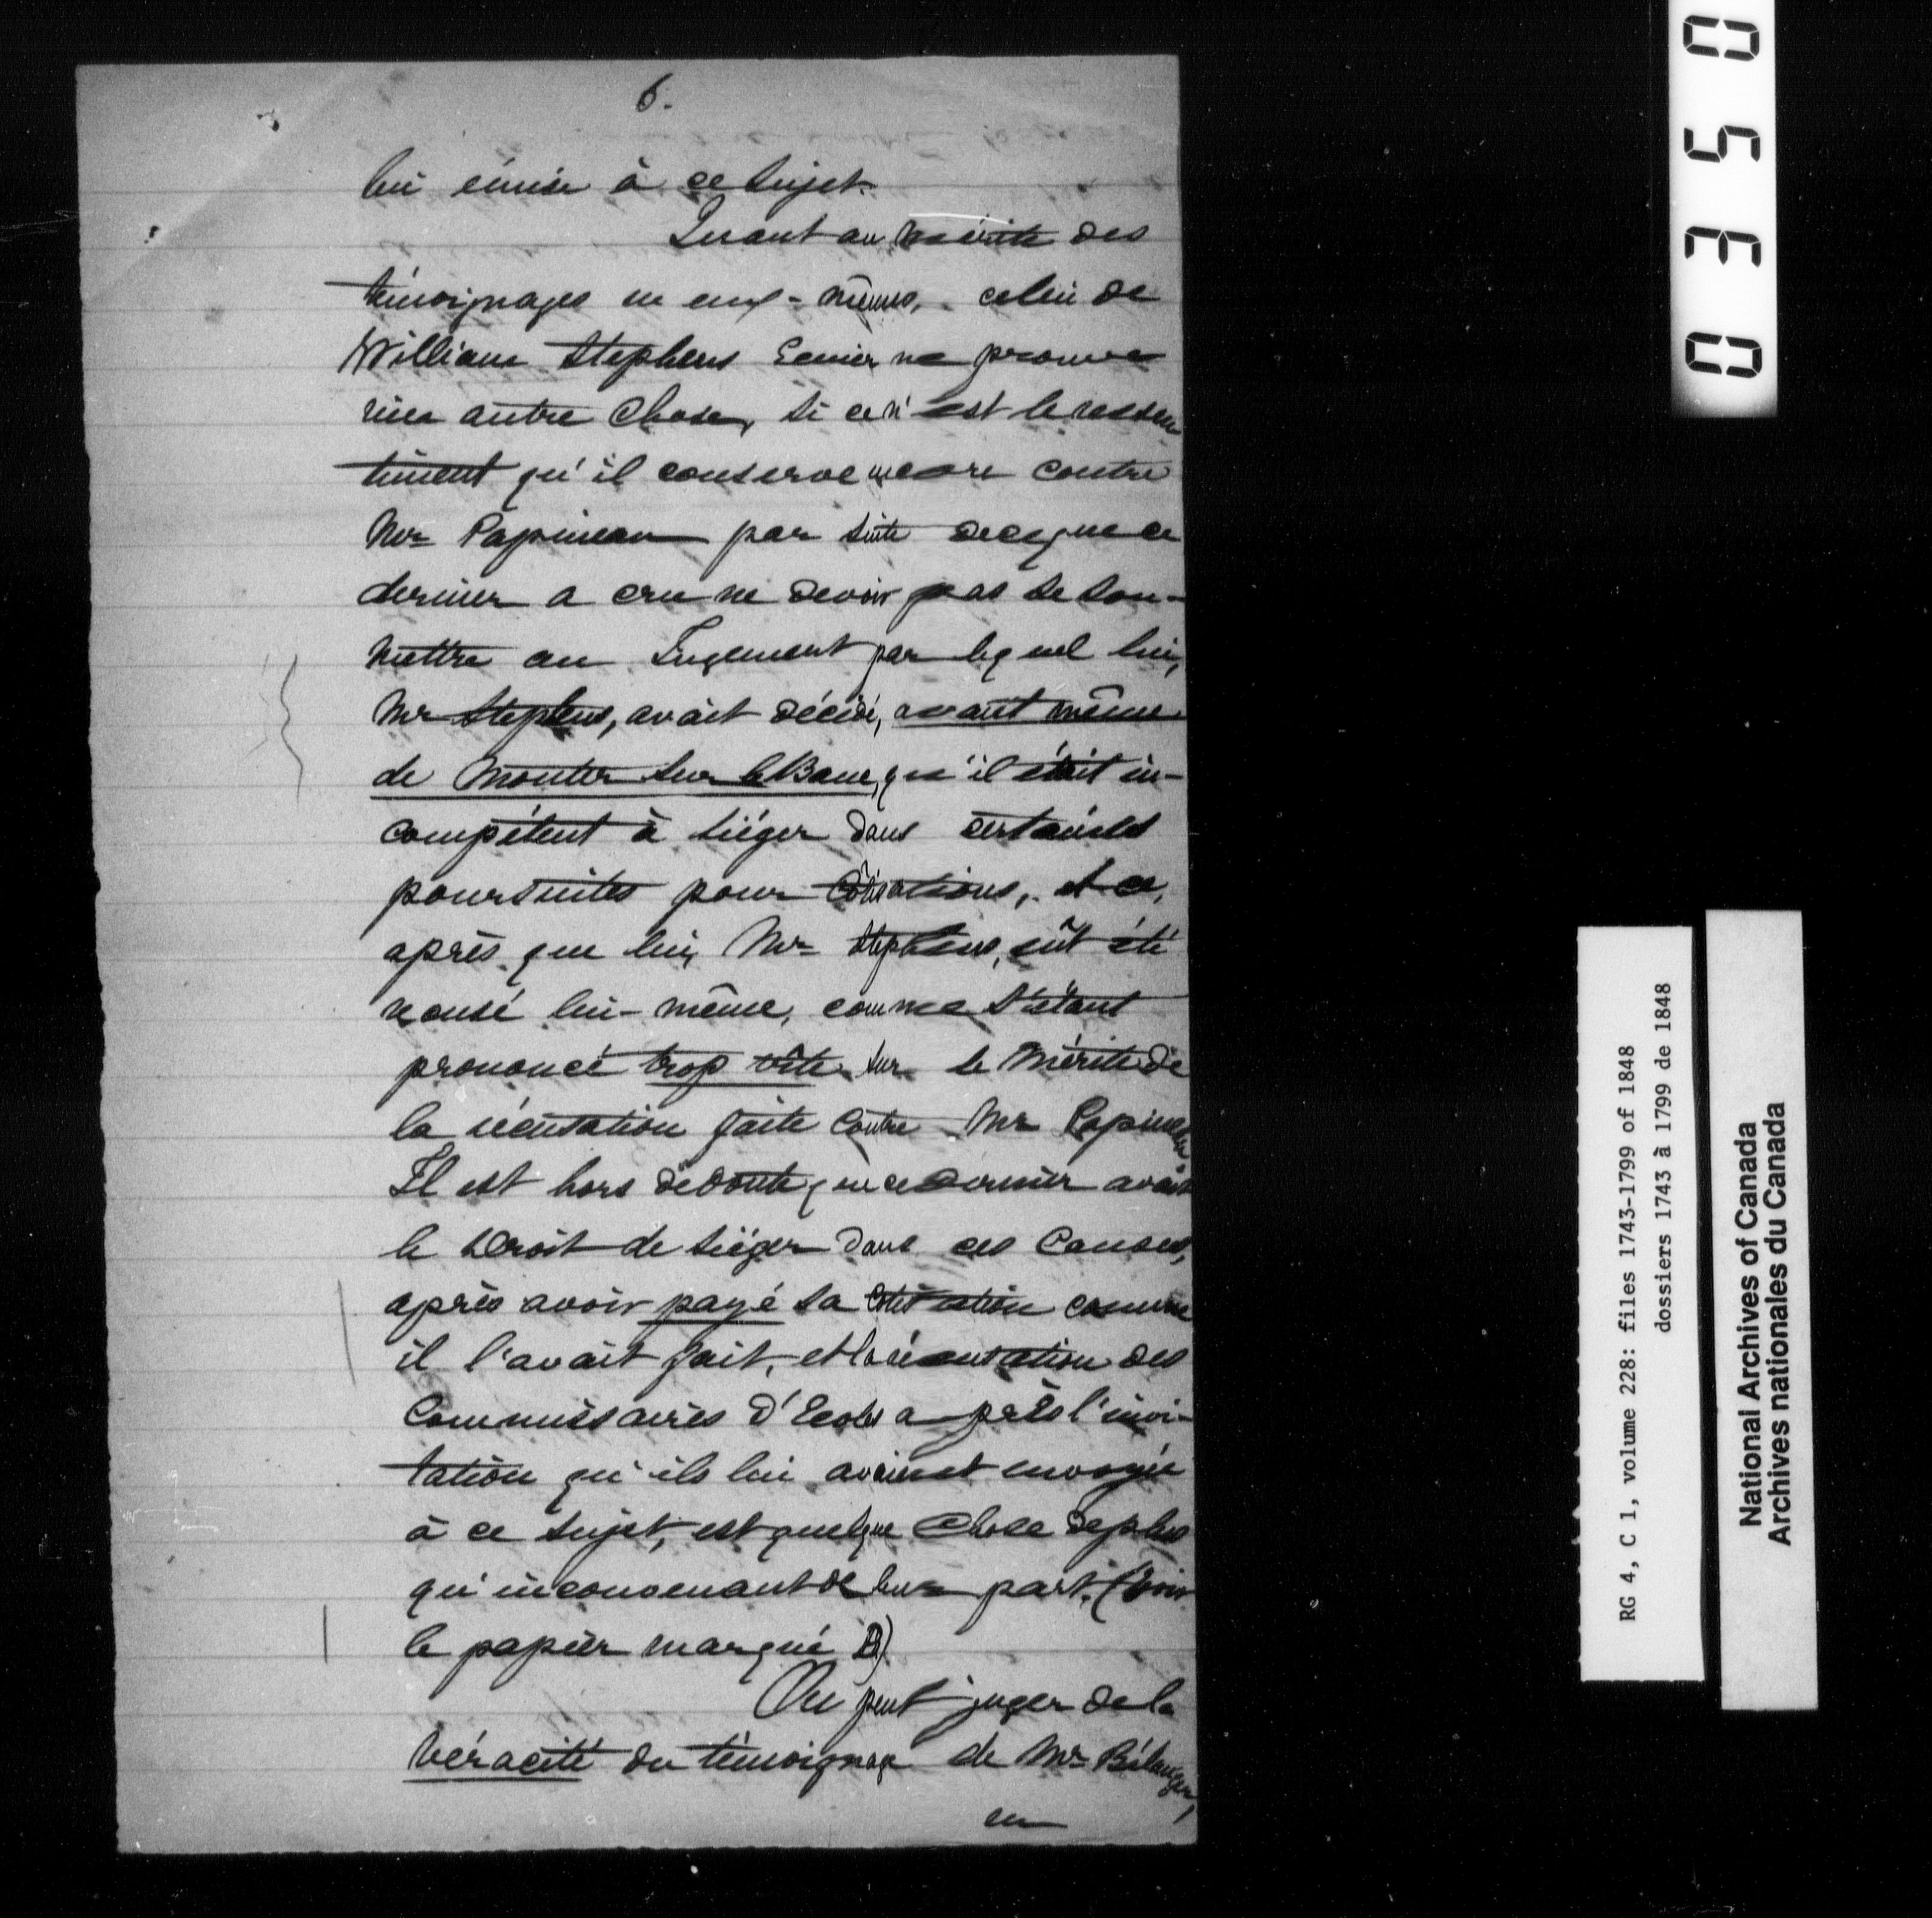 6.
lui émise à ce sujet.
Quant au mérite des
témoignages en eux-mêmes, celui de
William Stephens Ecuier ne prouve
rien autre chose, si ce n'est le ressen
timent qu'il conserve encore contre
Mr Papineau par suite de ce que ce
dernier a cru ne devoir pas se sou-
mettre au Jugement par lequel lui,
Mr Stephens, avait décidé, avant même
de monter sur le Banc, qu'il était in-
compétent à siéger dans certaines
poursuites pour Cotisations, et ce,
après que lui, Mr Stephens, eût été
recusé lui-même, comme s'étant
prononcé trop vîte sur le mérite de
la récusation faite contre Mr Papineau
Il est hors de doute que ce dernier avait
le Droit de siéger dans ces Causes,
après avoir payé sa Cotisation comme
il l'avait fait, et la récusation des
Commissaires d'Ecoles après l'invi-
tation qu'ils lui avaient envoyée
à ce sujet, est quelque chose de plus
qu'inconvenant de leur part. (Voir
le papier marqué B)
On peut juger de la
véracité du témoignage de Mr Bélanger,
en
0350
RG 4, C 1, volume 228: files 1743-1799 of 1848
dossiers 1743 à 1799 de 1848
National Archives of Canada
Archives nationales du Canada